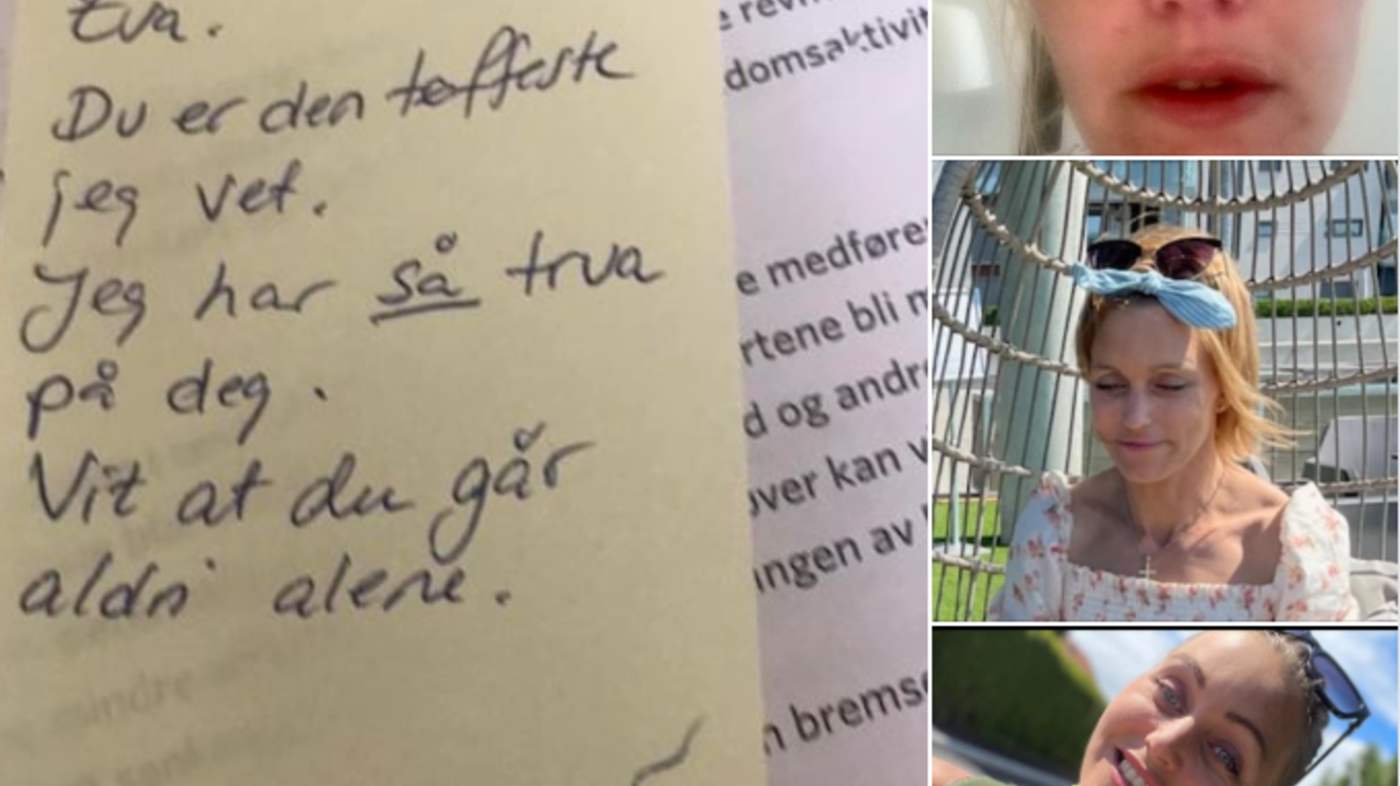 Eva.
Du er den tøffeste
jeg vet.
Jeg har så trua
på deg.
Vit at du går
aldri alene.
domsaktivit
e medføre
rtene bli
d og andr
over kan v
ingen av
n bremse
mindre